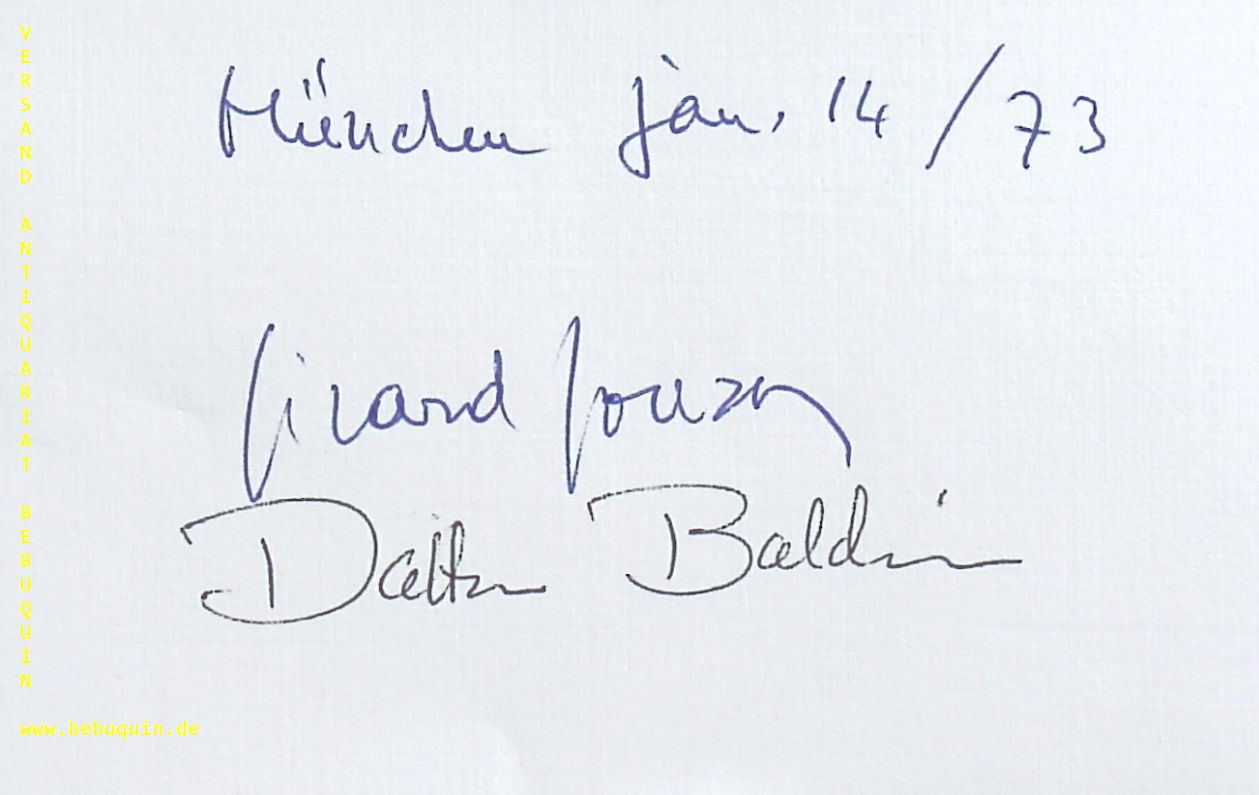 München Jan. 14/73
Gérard Souzay
Dalton Baldwin
VERSAND ANTIQUARIAT BEBUQUIN
www.bebuquin.de